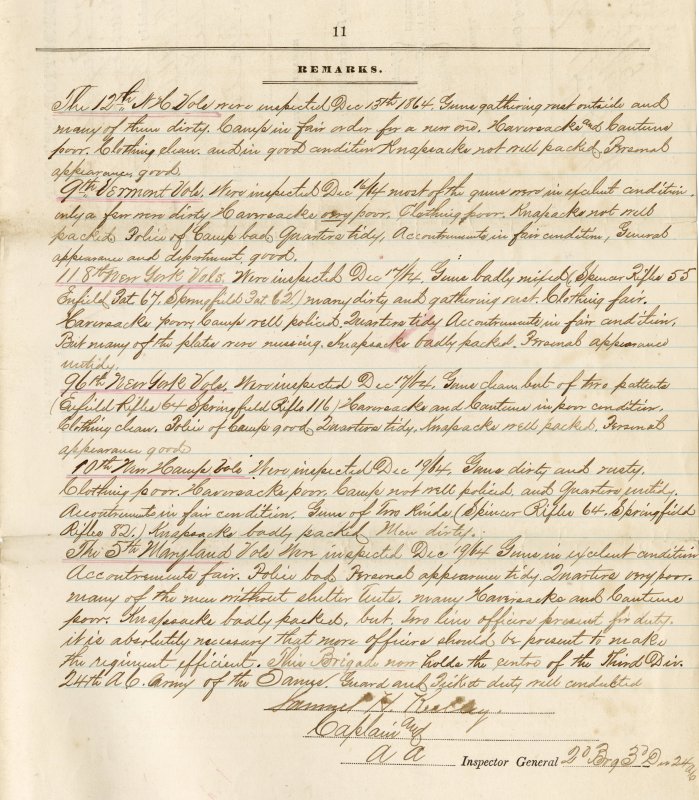 11
REMARKS.
The 12th N H Vols were inspected Dec 13th 1864. Guns gathering rust outside and
many of them dirty. Camp in fair order for a new one. Haversacks and Canteens
poor. Clothing clean. and in good condition Knapsacks not well packed Personal
appearance good.
9th Vermont Vols. Were inspected Dec 16/64 most of the guns were in excelent condition
only a few were dirty Haversacks very poor. Clothing poor. Knapsacks not well
packed Police of Camp bad Quarters tidy, Accoutrements in fair condition, General
appearance and deportment, good.
118th New York Vols. Were inspected Dec 17/64. Guns badly mixed (Spencer Rifles 55
Enfield Pat 67. Springfield Pat 62) many dirty and gathering rust. Clothing fair.
Haversacks poor, Camp well policed. Quarters tidy Accoutrements in fair condition,
But many of the plates were missing. Knapsacks badly packed. Personal appearance
untidy.
96th New York Vols, Were inspected Dec 17/64. Guns clean, but of two patterns
(Enfield Rifles 64 Springfield Rifles 116) Haversacks and Canteens in poor condition.
Clothing clean. Police of Camp good Quarters tidy. Knapsacks well packed. Personal
appearance good
10th New Hamp Vols Were inspected Dec 19/64. Guns dirty and rusty.
Clothing poor. Haversacks poor. Camp not well policed. and Quarters untidy.
Accoutrements in fair condition. Guns of two kinds (Spencer Rifles 64. Springfield
Rifles 82.) Knapsacks badly packed Men dirty.
The 5th Maryland Vols Were inspected Dec 19/64 Guns in excelent condition
Accoutrements fair. Police bad Personal appearance tidy. Quarters very poor.
many of the men without shelter tents. many Haversacks and Canteens
poor. Knapsacks badly packed. but. Two line officers present for duty.
it is absolutely necessary that more officers should be present to make
the regiment efficient. This Brigade now holds the centre of the Third Div.
24th A.C. Army of the James. Guard and Picket duty well conducted
Samuel
Captain and
A A Inspector General 2d Brig 3d Div 24 AC